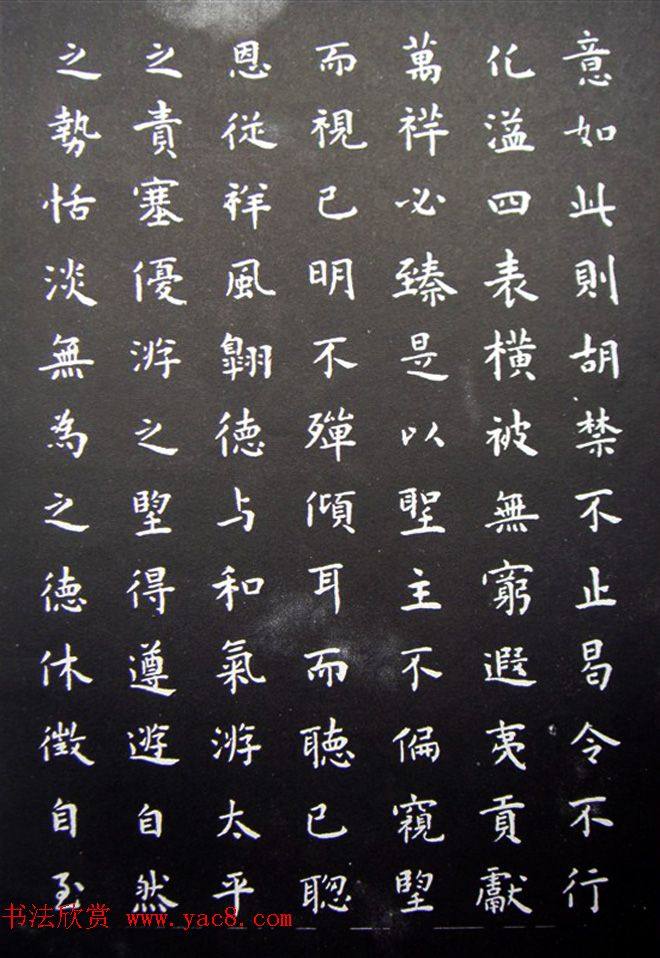 意如此則胡禁不止曷令不行
化溢四表橫被無窮遐夷貢獻
萬祥必臻是以聖主不偏窺望
而視已明不殫傾耳而聽已聰
恩從祥風翺德与和氣游太平
之責塞優游之望得遵遊自然
之勢恬淡無為之德休徵自至
书法欣赏 www.yac8.com